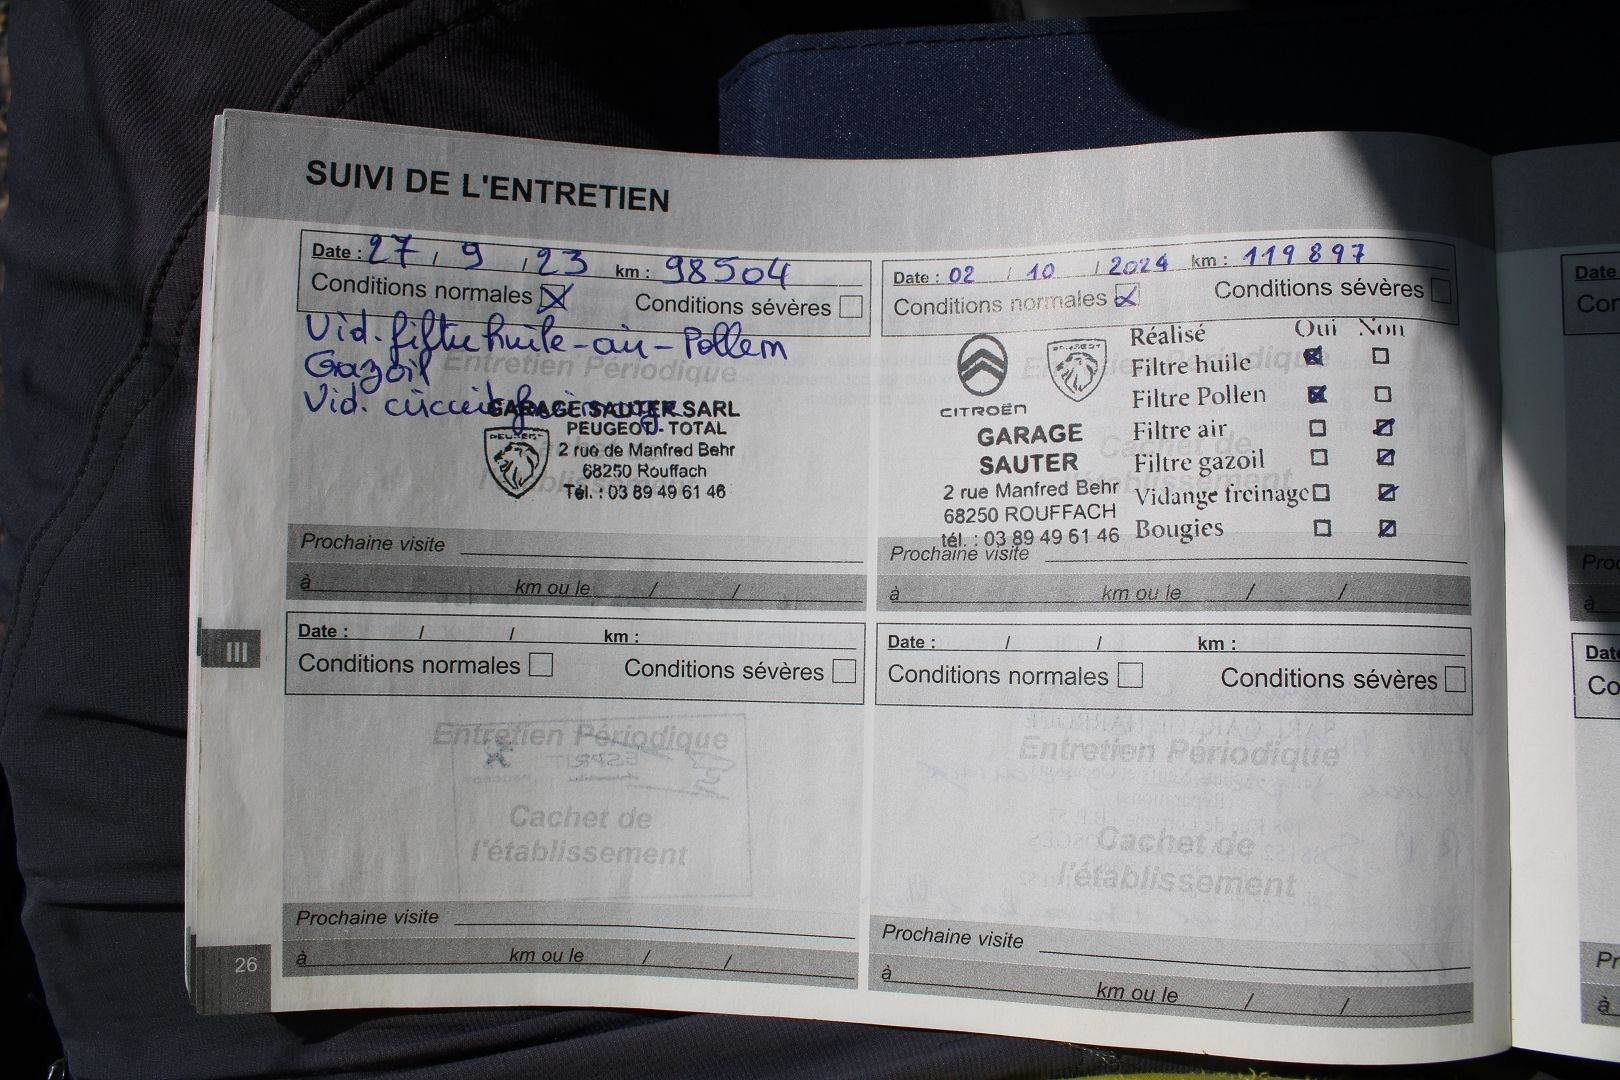 SUIVI DE L'ENTRETIEN
Date : 27 / 9 / 23 km : 98504
Conditions normales Conditions sévères
Vid. filtre huile - air - Pollem
Gazoil
Vid. circuit freinage
Entretien Périodique
GARAGE SAUTER SARL
PEUGEOT - TOTAL
PEUGEOT
2 rue de Manfred Behr
68250 Rouffach
Tél. : 03 89 49 61 46
Cachet de
l'établissement
Prochaine visite
à km ou le / /
Date : 02 / 10 / 2024 km : 119897
Conditions normales Conditions sévères
Entretien Périodique
Cachet de
l'établissement
CITROËN
PEUGEOT
GARAGE
SAUTER
2 rue Manfred Behr
68250 ROUFFACH
tél. : 03 89 49 61 46
Réalisé Oui Non
Filtre huile
Filtre Pollen
Filtre air
Filtre gazoil
Vidange freinage
Bougies
Prochaine visite
à km ou le / /
III
Date : / / km :
Conditions normales Conditions sévères
Entretien Périodique
Cachet de
l'établissement
Prochaine visite
à km ou le / /
Date : / / km :
Conditions normales Conditions sévères
Entretien Périodique
Cachet de
l'établissement
Prochaine visite
à km ou le / /
26
Date
Con
Pro
à
Date
Co
Pr
à